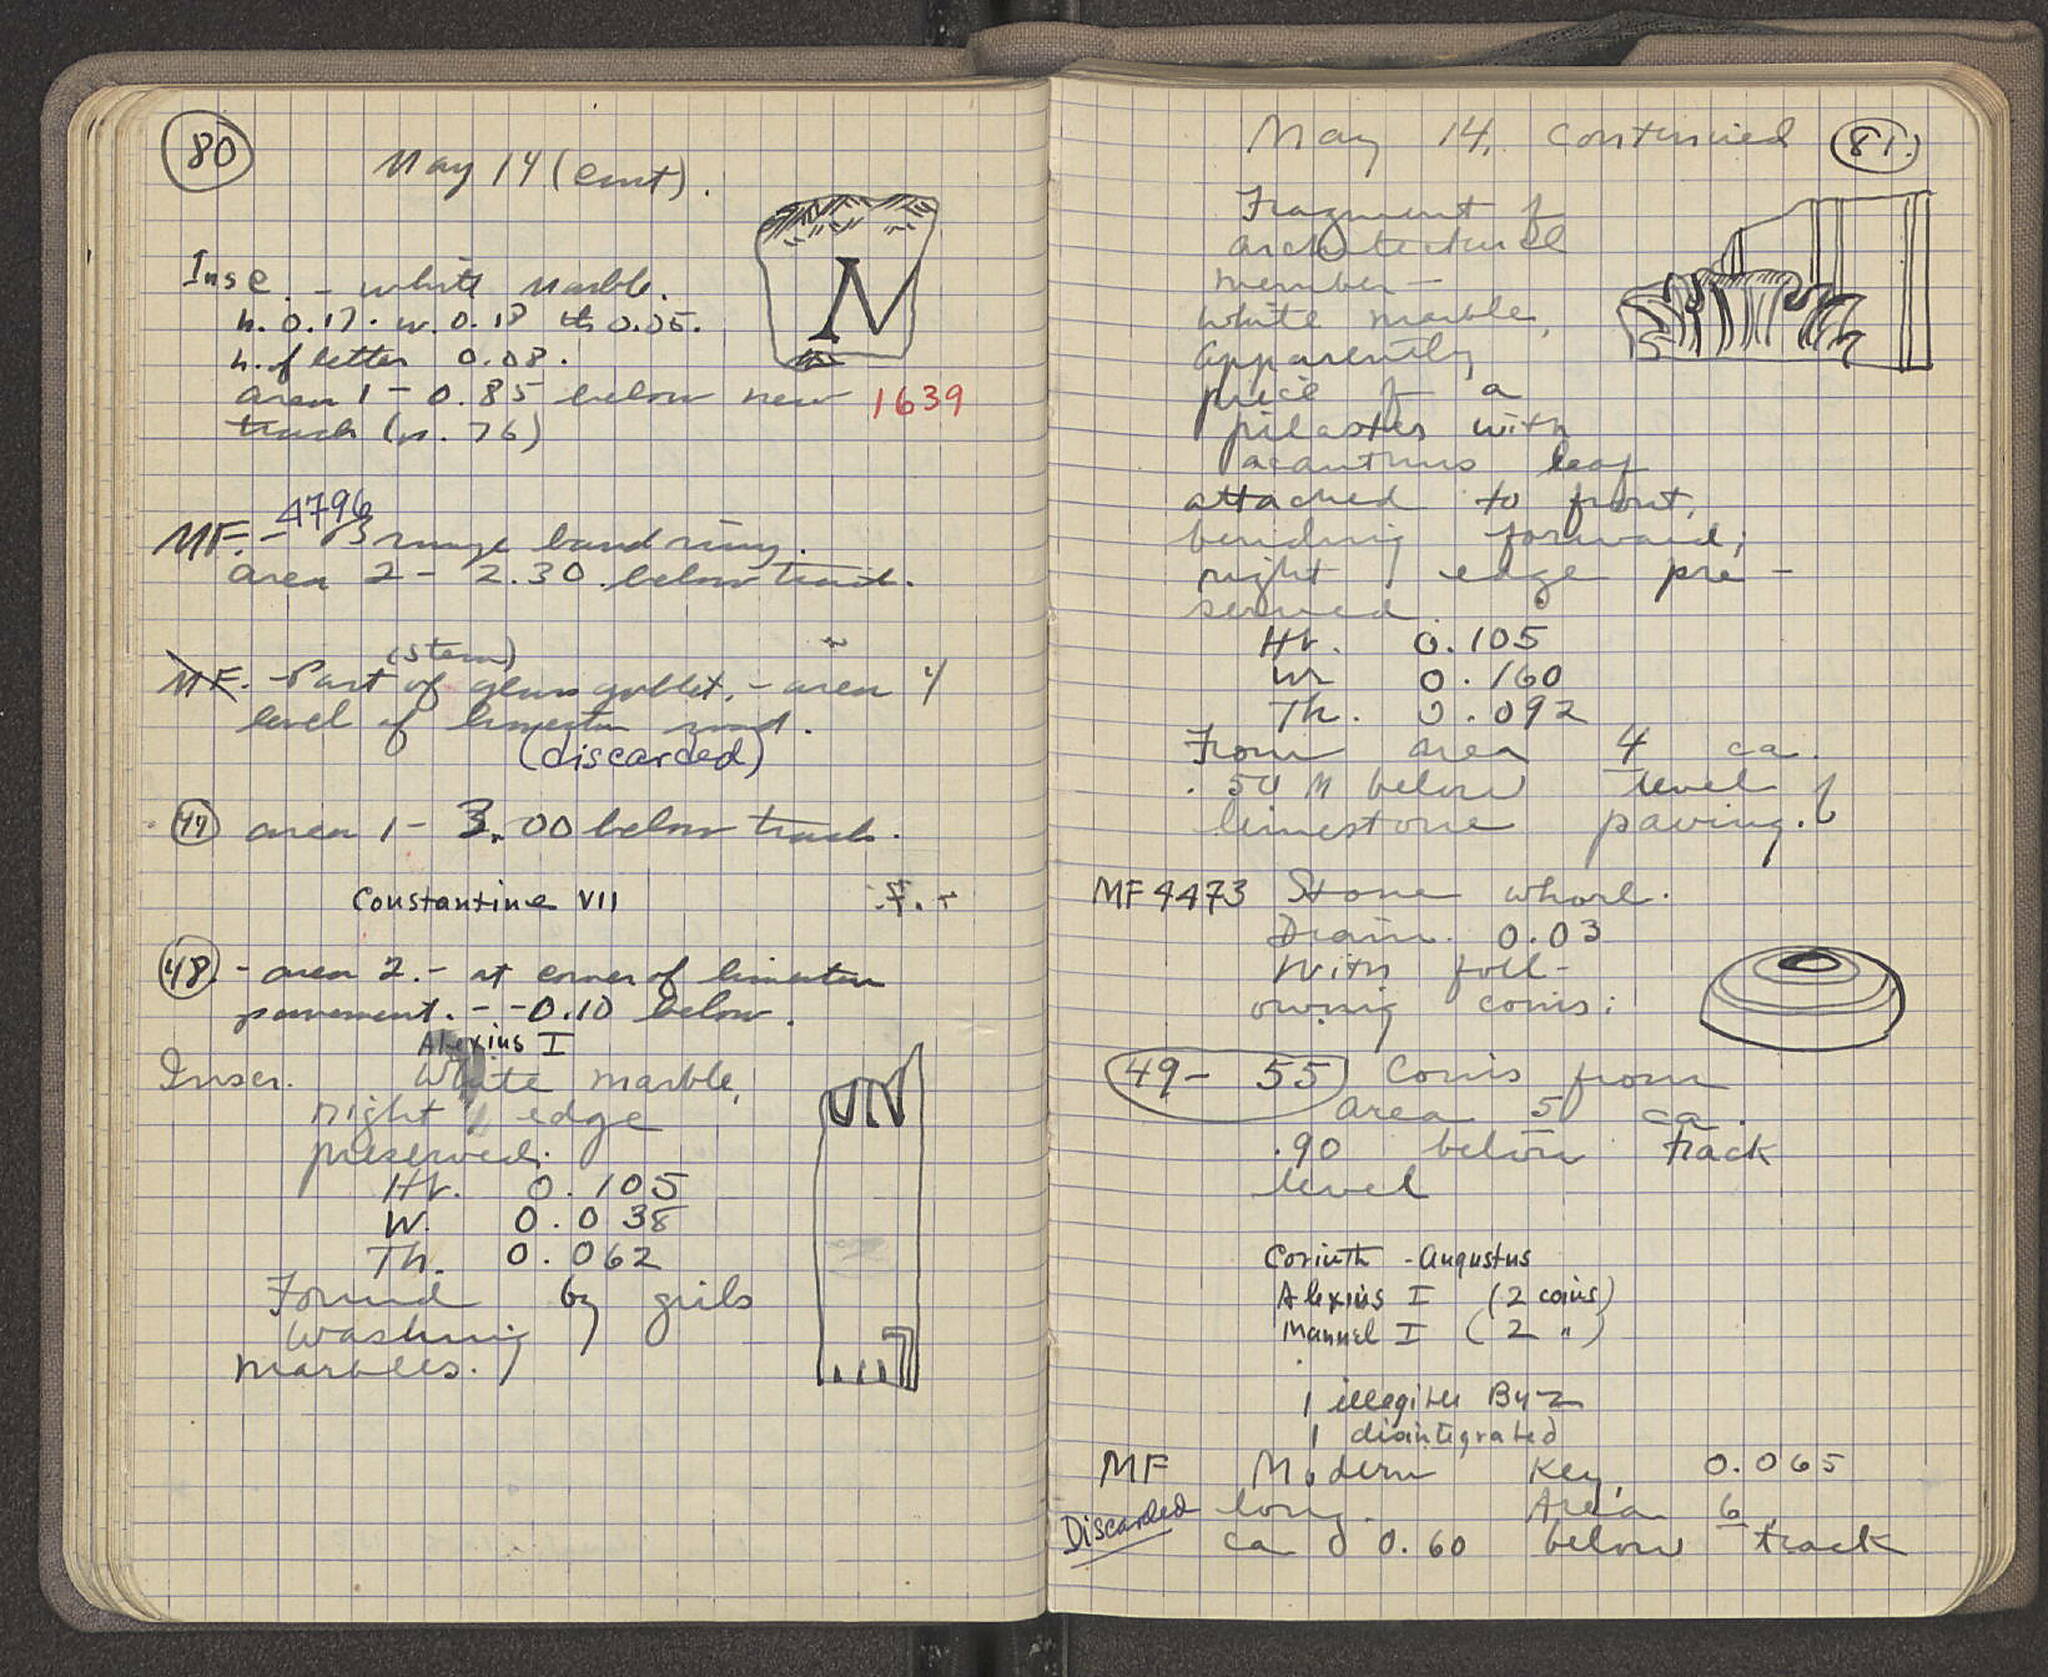 80
May 14 (cont).
Insc. - white marble.
h. 0.17. w. 0.18 th 0.05.
h. of letter 0.08.
area 1 - 0.85 below new
1639
track (p. 76)
N
4796
MF. - Bronze band ring.
area 2 - 2.30 below track.
(stem)
MF. - Part of glass goblet. - area 4
level of limestone road.
(discarded)
47 area 1 - 3.00 below track.
Constantine VII
48. - area 2. - at corner of limestone
pavement. - -0.10 below.
Alexius I
Inscr. White marble,
right edge
preserved.
Ht. 0.105
W. 0.038
Th. 0.062
Found by girls
washing
marbles.
May 14, continued 81.
Fragment of
architectural
member -
white marble,
apparently
piece of a
pilaster with
acanthus leaf
attached to front,
bending forward;
right edge pre-
served.
Ht. 0.105
W. 0.160
Th. 0.092
From area 4 ca.
.50 M below level of
limestone paving.
MF 4473 Stone whorl.
Diam. 0.03
With foll-
owing coins:
49 - 55 Coins from
area 5 ca.
.90 below track
level
Corinth - Augustus
Alexius I (2 coins)
Manuel I (2 ")
1 illegible Byz
1 disintegrated
MF Modern Key, 0.065
Discarded long. Area 6,
ca 0.60 below track